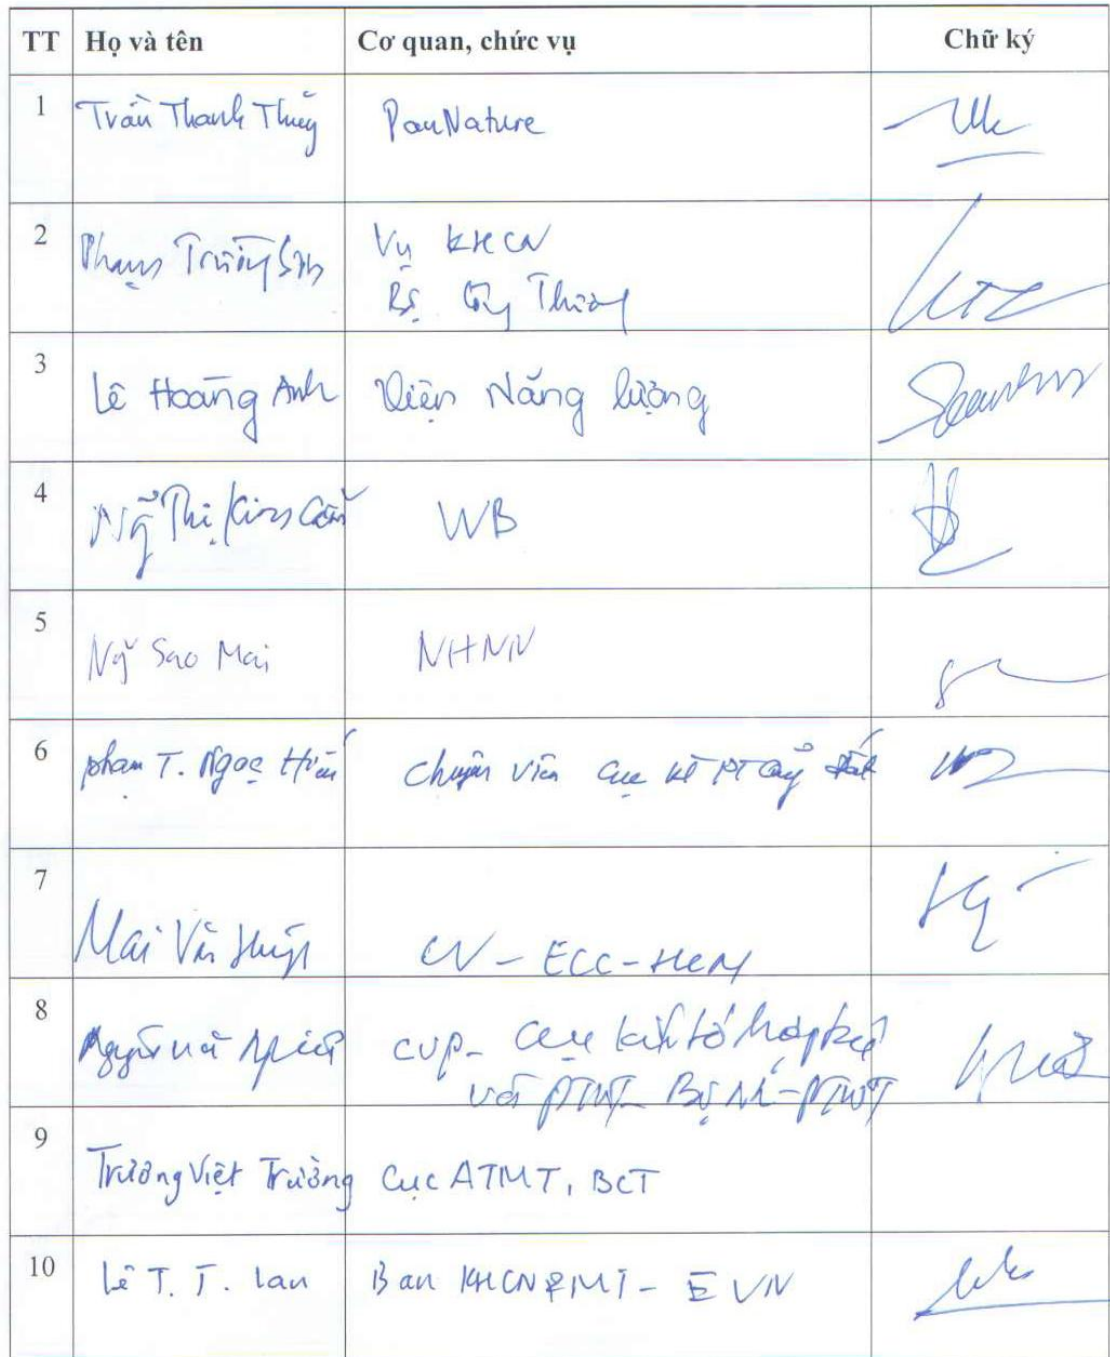 TT Họ và tên Cơ quan, chức vụ Chữ ký
1 Trần Thanh Thủy PanNature
2 Phạm Trường Sơn Vụ KHCN
Bộ Công Thương
3 Lê Hoàng Anh Viện Năng lượng
4 Ng̃ Thị Kim WB
5 Ng̃ Sao Mai NHNN
6 phạm T. Ngọc chuyên viên Cục
7 Mai Văn CV - ECC-HCM
8 Nguyễn CVP- Cục kinh tế hợp tác
và PTNT Bộ NN-PTNT
9 Trương Việt Trường Cục ATMT, BCT
10 Lê T. T. Lan Ban KHCN&MT - EVN